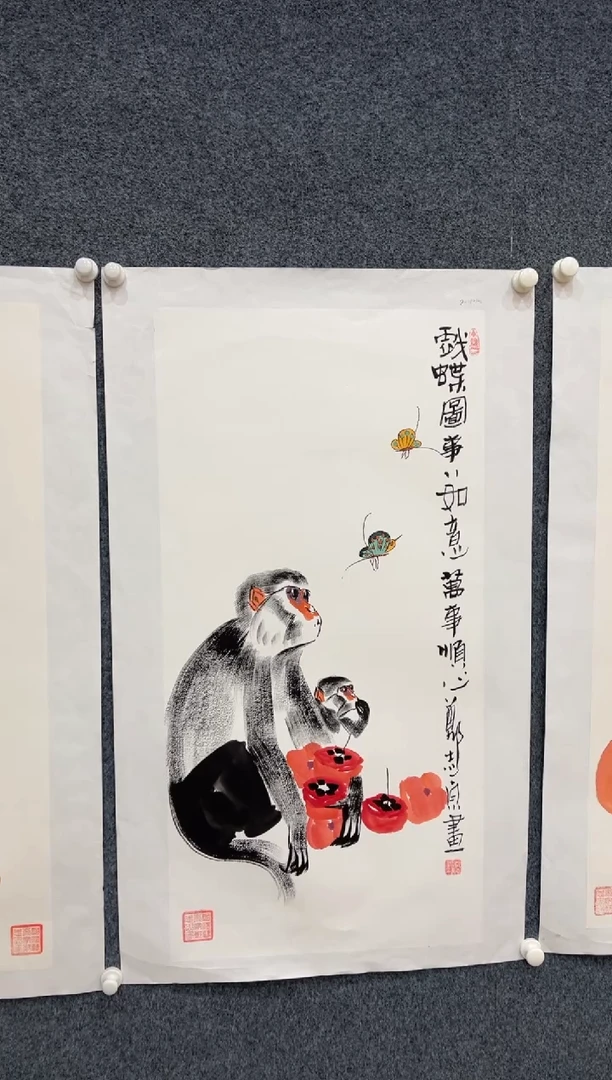 戲蝶圖事〻如意萬事順心鄭志京畫